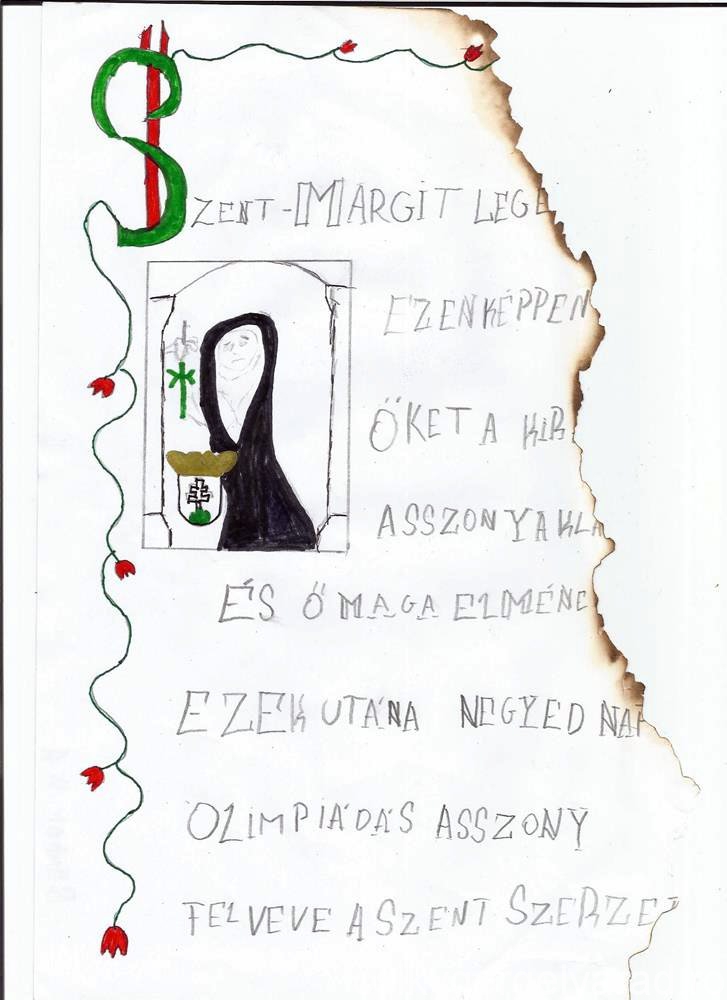 SZENT-MARGIT LEGE
EZENKÉPPEN
ŐKET A KIR
ASSZONYAKLA
ÉS Ő MAGA ELMÉNE
EZEK UTÁNA NEGYED NAP
OLIMPIÁDÁS ASSZONY
FELVEVE A SZENT SZERZE